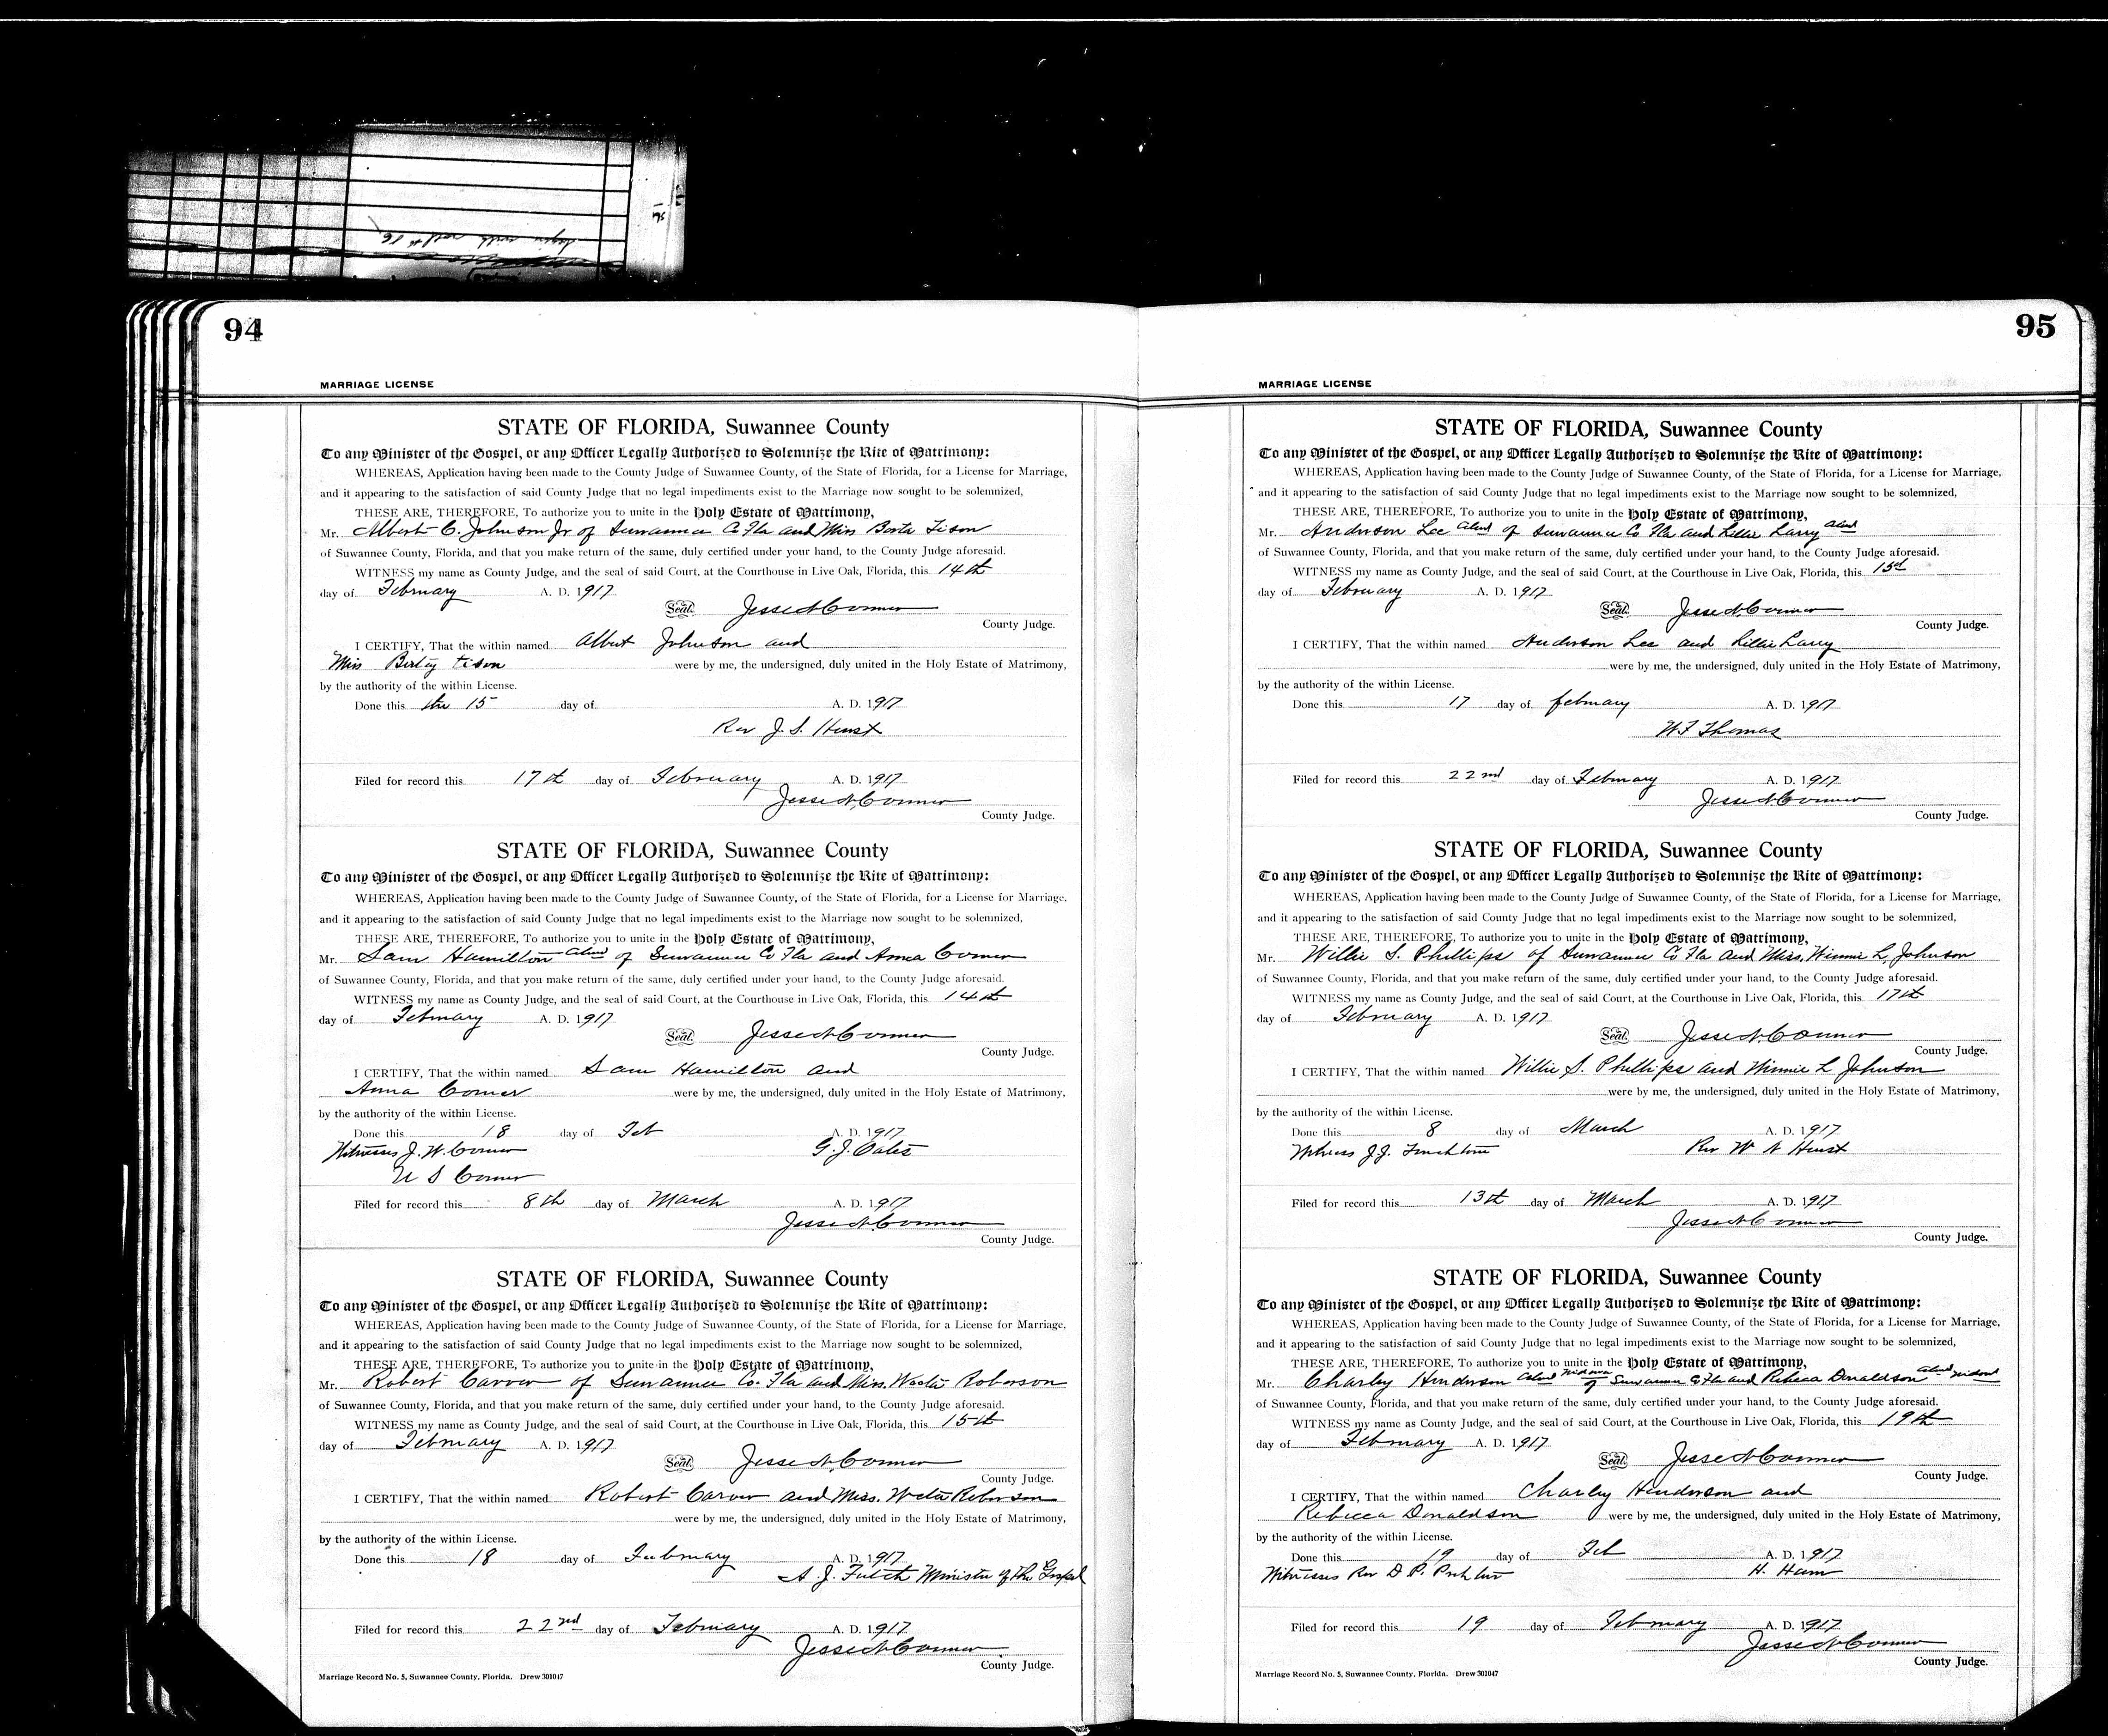 94
MARRIAGE LICENSE
STATE OF FLORIDA, Suwannee County
To any Minister of the Gospel, or any Officer Legally Authorized to Solemnize the Rite of Matrimony:
WHEREAS, Application having been made to the County Judge of Suwannee County, of the State of Florida, for a License for Marriage,
and it appearing to the satisfaction of said County Judge that no legal impediments exist to the Marriage now sought to be solemnized,
THESE ARE, THEREFORE, To authorize you to unite in the Holy Estate of Matrimony,
Mr. Albert C. Johnson Jr of Suwannee Co Fla and Miss Berta Tison
of Suwannee County, Florida, and that you make return of the same, duly certified under your hand, to the County Judge aforesaid.
WITNESS my name as County Judge, and the seal of said Court, at the Courthouse in Live Oak, Florida, this 14th
day of February A. D. 1917
Seal. Jesse N. Conner
County Judge.
I CERTIFY, That the within named Albert Johnson and
Miss Tison were by me, the undersigned, duly united in the Holy Estate of Matrimony,
by the authority of the within License.
Done this the 15 day of A. D. 1917
Rev J. S. Hurst
Filed for record this 17th day of February A. D. 1917
Jesse N. Conner
County Judge.
STATE OF FLORIDA, Suwannee County
To any Minister of the Gospel, or any Officer Legally Authorized to Solemnize the Rite of Matrimony:
WHEREAS, Application having been made to the County Judge of Suwannee County, of the State of Florida, for a License for Marriage,
and it appearing to the satisfaction of said County Judge that no legal impediments exist to the Marriage now sought to be solemnized,
THESE ARE, THEREFORE, To authorize you to unite in the Holy Estate of Matrimony,
Mr. Sam Hamilton Col'd of Suwannee Co Fla and Anna Comer
of Suwannee County, Florida, and that you make return of the same, duly certified under your hand, to the County Judge aforesaid.
WITNESS my name as County Judge, and the seal of said Court, at the Courthouse in Live Oak, Florida, this 14th
day of February A. D. 1917
Seal. Jesse N. Conner
County Judge.
I CERTIFY, That the within named Sam Hamilton and
Anna Comer were by me, the undersigned, duly united in the Holy Estate of Matrimony,
by the authority of the within License.
Done this 18 day of Feb A. D. 1917
Witnesses J. W. Comer G. J. Oates
U S Comer
Filed for record this 8th day of March A. D. 1917
Jesse N. Conner
County Judge.
STATE OF FLORIDA, Suwannee County
To any Minister of the Gospel, or any Officer Legally Authorized to Solemnize the Rite of Matrimony:
WHEREAS, Application having been made to the County Judge of Suwannee County, of the State of Florida, for a License for Marriage,
and it appearing to the satisfaction of said County Judge that no legal impediments exist to the Marriage now sought to be solemnized,
THESE ARE, THEREFORE, To authorize you to unite in the Holy Estate of Matrimony,
Mr. Robert Carver of Suwannee Co. Fla and Miss. Weeta Roberson
of Suwannee County, Florida, and that you make return of the same, duly certified under your hand, to the County Judge aforesaid.
WITNESS my name as County Judge, and the seal of said Court, at the Courthouse in Live Oak, Florida, this 15th
day of February A. D. 1917
Seal. Jesse N. Conner
County Judge.
I CERTIFY, That the within named Robert Carver and Miss. Weeta Roberson
were by me, the undersigned, duly united in the Holy Estate of Matrimony,
by the authority of the within License.
Done this 18 day of February A. D. 1917
A. J. Futch Minister of the Gospel
Filed for record this 22nd day of February A. D. 1917
Jesse N. Conner
County Judge.
Marriage Record No. 5, Suwannee County, Florida. Drew 301047
95
MARRIAGE LICENSE
STATE OF FLORIDA, Suwannee County
To any Minister of the Gospel, or any Officer Legally Authorized to Solemnize the Rite of Matrimony:
WHEREAS, Application having been made to the County Judge of Suwannee County, of the State of Florida, for a License for Marriage,
and it appearing to the satisfaction of said County Judge that no legal impediments exist to the Marriage now sought to be solemnized,
THESE ARE, THEREFORE, To authorize you to unite in the Holy Estate of Matrimony,
Mr. Anderson Lee Col'd of Suwannee Co Fla and Lillie Larry Col'd
of Suwannee County, Florida, and that you make return of the same, duly certified under your hand, to the County Judge aforesaid.
WITNESS my name as County Judge, and the seal of said Court, at the Courthouse in Live Oak, Florida, this 15th
day of February A. D. 1917
Seal. Jesse N. Conner
County Judge.
I CERTIFY, That the within named Anderson Lee and Lillie Larry
were by me, the undersigned, duly united in the Holy Estate of Matrimony,
by the authority of the within License.
Done this 17 day of february A. D. 1917
W. F Thomas
Filed for record this 22nd day of February A. D. 1917
Jesse N. Conner
County Judge.
STATE OF FLORIDA, Suwannee County
To any Minister of the Gospel, or any Officer Legally Authorized to Solemnize the Rite of Matrimony:
WHEREAS, Application having been made to the County Judge of Suwannee County, of the State of Florida, for a License for Marriage,
and it appearing to the satisfaction of said County Judge that no legal impediments exist to the Marriage now sought to be solemnized,
THESE ARE, THEREFORE, To authorize you to unite in the Holy Estate of Matrimony,
Mr. Willie S. Phillips of Suwannee Co Fla and Miss, Winnie L. Johnson
of Suwannee County, Florida, and that you make return of the same, duly certified under your hand, to the County Judge aforesaid.
WITNESS my name as County Judge, and the seal of said Court, at the Courthouse in Live Oak, Florida, this 17th
day of February A. D. 1917
Seal. Jesse N. Conner
County Judge.
I CERTIFY, That the within named Willie S. Phillips and Winnie L Johnson
were by me, the undersigned, duly united in the Holy Estate of Matrimony,
by the authority of the within License.
Done this 8 day of March A. D. 1917
Witness J. J. Rev W N Hurst
Filed for record this 13th day of March A. D. 1917
Jesse N. Conner
County Judge.
STATE OF FLORIDA, Suwannee County
To any Minister of the Gospel, or any Officer Legally Authorized to Solemnize the Rite of Matrimony:
WHEREAS, Application having been made to the County Judge of Suwannee County, of the State of Florida, for a License for Marriage,
and it appearing to the satisfaction of said County Judge that no legal impediments exist to the Marriage now sought to be solemnized,
THESE ARE, THEREFORE, To authorize you to unite in the Holy Estate of Matrimony,
Mr. Charley Henderson Col'd Widower of Suwannee Co Fla and Rebeca Donaldson Col'd Widow
of Suwannee County, Florida, and that you make return of the same, duly certified under your hand, to the County Judge aforesaid.
WITNESS my name as County Judge, and the seal of said Court, at the Courthouse in Live Oak, Florida, this 19th
day of February A. D. 1917
Seal. Jesse N. Conner
County Judge.
I CERTIFY, That the within named Charley Henderson and
Rebecca Donaldson were by me, the undersigned, duly united in the Holy Estate of Matrimony,
by the authority of the within License.
Done this 19 day of Feb A. D. 1917
Witnesses Rev D. P. H. Ham
Filed for record this 19 day of February A. D. 1917
Jesse N. Conner
County Judge.
Marriage Record No. 5, Suwannee County, Florida. Drew 301047